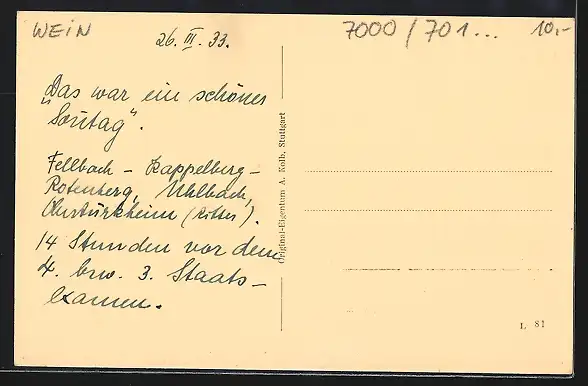 WEIN
7000/701...
10,-
26. III. 33.
Das war ein schönes
"Sonntag".
Fellbach – Kappelberg –
Rotenberg, Uhlbach,
Obertürkheim (Ritter).
14 Stunden vor dem
4. bzw. 3. Staats-
examen.
Original-Eigentum A. Kolb, Stuttgart
L 81